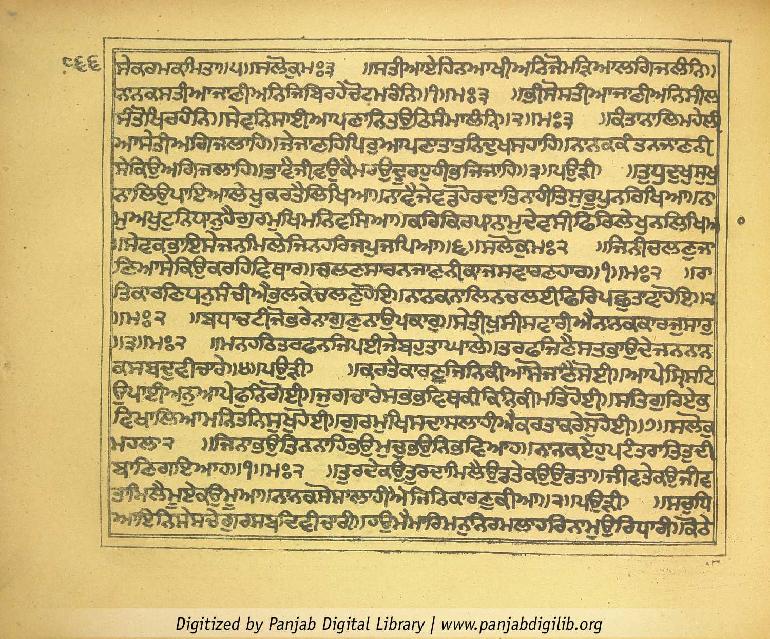 ਸੇਕਰਮਕਮਤਾ॥੫॥ਸਲੋਕੁਮਃ੩ ॥ਸਤੀਆਏਹਿਨਆਖੀਅਨਿਜੋਮੜਿਆਲਗਿਜਲੰਨਿ॥ ੮੬੬
ਨਾਨਕਸਤੀਆਜਾਣੀਅਨਿਜਿਬਿਰਹੇਚੋਟਮਰੰਨਿ॥੧॥ਮਃ੩ ॥ਭੀਸੋਸਤੀਆਜਾਣੀਅਨਿਸੀਲ
ਸੰਤੋਖਿਰਹੰਨਿ॥ਸੇਵਨਿਸਾਈਆਪਣਾਨਿਤਉਠਿਸੰਮਾਲੰਨਿ॥੨॥ਮਃ੩ ॥ਕੰਤਾਨਾਲਿਮਹੇਲੀ
ਆਸੇਤੀਅਗਿਜਲਾਹਿ॥ਜੇਜਾਣਹਿਪਿਰੁਆਪਣਾਤਾਤਨਿਦੁਖਸਹਾਹਿ॥ਨਾਨਕਕੰਤਨਜਾਣਨੀ
ਸੇਕਿਉਅਗਿਜਲਾਹਿ॥ਭਾਵੈਜੀਵਉਕੈਮਰਉਦੂਰਹੁਹੀਭਜਿਜਾਹਿ॥੩॥ਪਉੜੀ ॥ਤੁਧੁਦੁਖੁਸੁਖੁ
ਨਾਲਿਉਪਾਇਆਲੇਖੁਕਰਤੈਲਿਖਿਆ॥ਨਾਵੈਜੇਵਡਹੋਰਦਾਤਿਨਾਹੀਤਿਸੁਰੂਪੁਨਰਿਖਿਆ॥ਨਾ
ਮੁਅਖੁਟੁਨਿਧਾਨੁਹੈਗੁਰਮੁਖਿਮਨਿਵਸਿਆ॥ਕਰਿਕਿਰਪਾਨਾਮੁਦੇਵਸੀਫਿਰਿਲੇਖੁਨਲਿਖਿਆ
॥ਸੇਵਕਭਾਇਸੇਜਨਮਿਲੇਜਿਨਹਰਿਜਪੁਜਪਿਆ॥੬॥ਸਲੋਕੁਮਃ੨ ॥ਜਿਨੀਚਲਣੁਜਾ
ਣਿਆਸੇਕਿਉਕਰਹਿਵਿਥਾਰ॥ਚਲਣਸਾਰਨਜਾਣਨੀਕਾਜਸਵਾਰਣਹਾਰ॥੧॥ਮਃ੨ ॥ਰਾ
ਤਿਕਾਰਣਿਧਨੁਸੰਚੀਐਭਲਕੇਚਲਣੁਹੋਇ॥ਨਾਨਕਨਾਲਿਨਚਲਈਫਿਰਿਪਛੁਤਾਵਾਹੋਇ॥੨
॥ਮਃ੨ ॥ਬਧਾਚਟੀਜੋਭਰੇਨਾਗੁਣੁਨਾਉਪਕਾਰੁ॥ਸੇਤੀਖੁਸੀਸਵਾਰੀਐਨਾਨਕਕਾਰਜੁਸਾਰੁ
॥੩॥ਮਃ੨ ॥ਮਨਹਠਿਤਰਫਨਜਿਪਈਜੇਬਹੁਤਾਘਾਲੇ॥ਤਰਫਜਿਣੈਸਤਭਾਉਦੇਜਨਨਾਨ
ਕਸਬਦੁਵੀਚਾਰੇ॥੪॥ਪਉੜੀ ॥ਕਰਤੈਕਾਰਣੁਜਿਨਿਕੀਆਸੋਜਾਣੈਸੋਈ॥ਆਪੇਸ੍ਰਿਸਟਿ
ਉਪਾਈਅਨੁਆਪੇਫੁਨਿਗੋਈ॥ਜੁਗਚਾਰੇਸਭਭਵਿਥਕੀਕਿਨਿਕੀਮਤਿਹੋਈ॥ਸਤਿਗੁਰਿਏਕੁ
ਵਿਖਾਲਿਆਮਨਿਤਨਿਸੁਖੁਹੋਈ॥ਗੁਰਮੁਖਿਸਦਾਸਲਾਹੀਐਕਰਤਾਕਰੇਸੁਹੋਈ॥੭॥ਸਲੋਕੁ
ਮਹਲਾ੨ ॥ਜਿਨਾਭਉਤਿਨਨਾਹਿਭਉਮੁਚੁਭਉਨਿਭਵਿਆਹ॥ਨਾਨਕਏਹੁਪਟੰਤਰਾਤਿਤੁਦੀ
ਬਾਣਿਗਇਆਹ॥੧॥ਮਃ੨ ॥ਤੁਰਦੇਕਉਤੁਰਦਾਮਿਲੈਉਡਤੇਕਉਉਡਤਾ॥ਜੀਵਤੇਕਉਜੀਵ
ਤਾਮਿਲੈਮੂਏਕਉਮੂਆ॥ਨਾਨਕਸੋਸਾਲਾਹੀਐਜਿਨਿਕਾਰਣੁਕੀਆ॥੨॥ਪਉੜੀ ॥ਸਚੁਧਿ
ਆਇਨਿਸੇਸਚੇਗੁਰਸਬਦਿਵੀਚਾਰੀ॥ਹਉਮੈਮਾਰਿਮਨੁਨਿਰਮਲਾਹਰਿਨਾਮੁਉਰਿਧਾਰੀ॥ਕੋਠੇ
Digitized by Panjab Digital Library | www.panjabdigilib.org